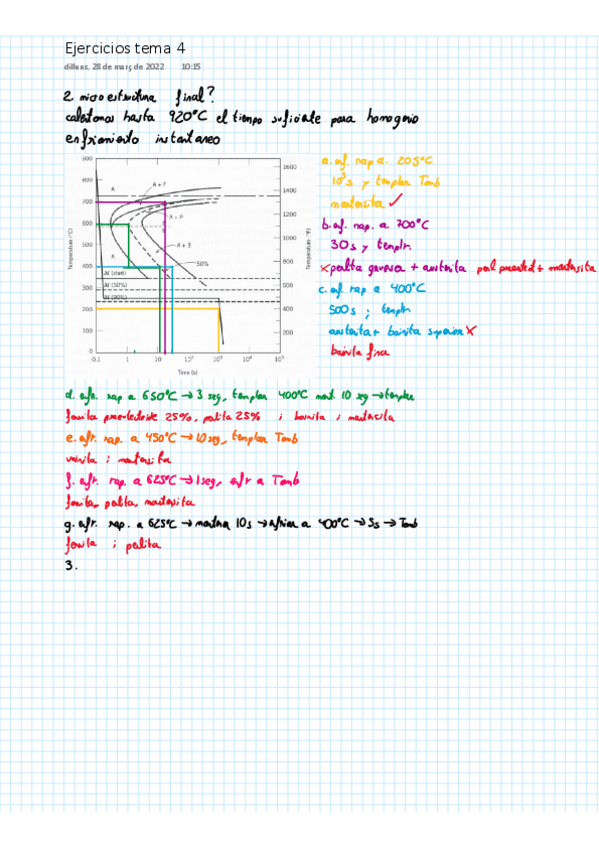 Ejercicios tema 4
dilluns, 28 de març de 2022 10:15
2. microestructura final?
calentamos hasta 920°C el tiempo suficiente para homogenio
enfriamiento instantaneo
900
800
700
600
500
400
300
200
100
0
Temperature (°C)
0.1 1 10 10² 10³ 10⁴ 10⁵
Time (s)
1600
1400
1200
1000
800
600
400
200
Temperature (°F)
A
A + F
A + P
A + B
A
50%
M (start)
M (50%)
M (90%)
a. ef. rap a. 205°C
10³s y templar Tamb
martensita ✓
b. ef. rap. a. 700°C
30s y templr.
x perlita gruesa + austenita + martensita
c. ef. rap a 400°C
500s ; templr
austenita + bainita superior X
bainita fina
d. efr. rap a 650°C → 3 seg, templar 400°C mant. 10 seg → templar
ferrita proeutectoide 25%, perlita 25% i bainita i martensita
e. efr. rap. a 450°C → 10 seg, templar Tamb
vainita i martensita
f. efr. rap. a 625°C → 1 seg, efr a Tamb
ferrita, perlita, martensita
g. efr. rap. a 625°C → 10s → a 400°C → 5s → Tamb
ferrita i perlita
3.